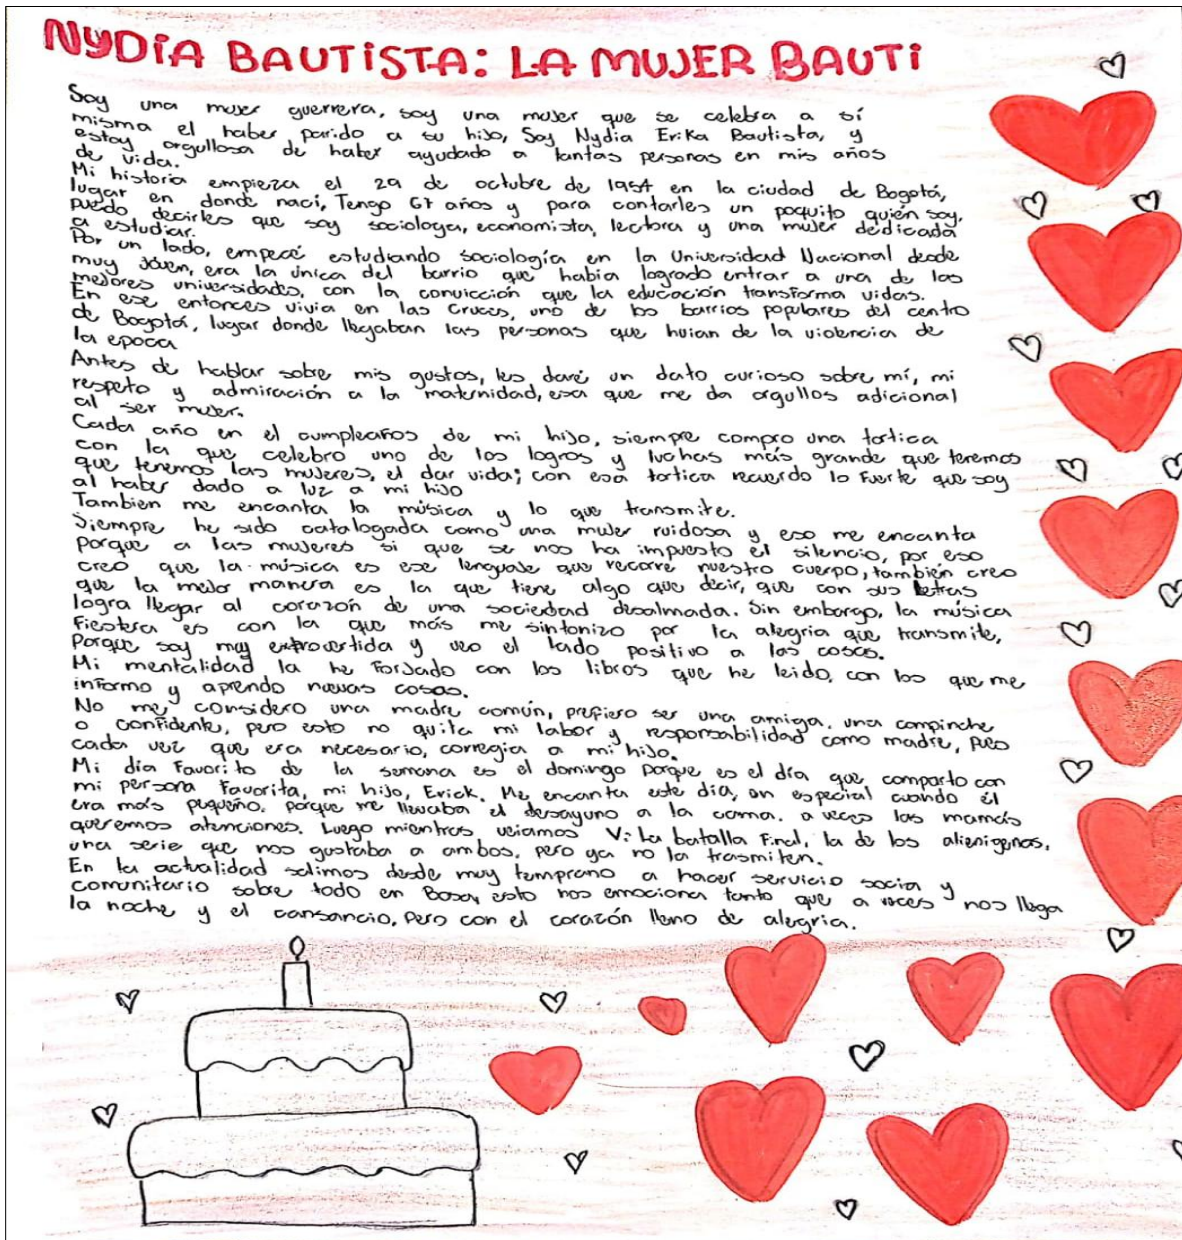 NyDiA BAUTiSTA: LA MUJER BAUTi
Soy una mujer guerrera, soy una mujer que se celebra a sí
misma el haber parido a su hijo, Soy Nydia Erika Bautista, y
estoy orgullosa de haber ayudado a tantas personas en mis años
de vida.
Mi historia empieza el 29 de octubre de 1954 en la ciudad de Bogotá,
lugar en donde nací, Tengo 67 años y para contarles un poquito quién soy,
puedo decirles que soy sociologa, economista, lectora y una mujer dedicada
a estudiar.
Por un lado, empecé estudiando sociología en la Universidad Nacional desde
muy jóven, era la única del barrio que había logrado entrar a una de las
mejores universidades, con la convicción que la educación transforma vidas.
En ese entonces vivia en las Cruces, uno de los barrios populares del centro
de Bogotá, lugar donde llegaban las personas que huian de la violencia de
la epoca
Antes de hablar sobre mis gustos, les daré un dato curioso sobre mí, mi
respeto y admiración a la maternidad, esa que me da orgullos adicional
al ser mujer.
Cada año en el cumpleaños de mi hijo, siempre compro una tortica
con la que celebro uno de los logros y luchas más grande que teremos
que tenemos las mujeres, el dar vida; con esa tortica recuerdo lo fuerte que soy
al haber dado a luz a mi hijo
Tambien me encanta la música y lo que transmite.
Siempre he sido catalogada como una mujer ruidosa y eso me encanta
porque a las mujeres si que se nos ha impuesto el silencio, por eso
creo que la música es ese lenguaje que recorre nuestro cuerpo, también creo
que la mejor manera es la que tiene algo que decir, que con sus letras
logra llegar al corazón de una sociedad desalmada. Sin embargo, la música
fiestera es con la que más me sintonizo por la alegria que transmite,
Porque soy muy extrovertida y veo el lado positivo a las cosas.
Mi mentalidad la he forjado con los libros que he leido, con los que me
informo y aprendo nuevas cosas.
No me considero una madre común, prefiero ser una amiga, una compinche
o confidente, pero esto no quita mi labor y responsabilidad como madre, pues
cada vez que era necesario, corregia a mi hijo.
Mi día Favorito de la semana es el domingo porque es el día que comparto con
mi persona Favorita, mi hijo, Erick. Me encanta este día, en especial cuando él
era más pequeño, porque me llevaba el desayuno a la cama, a veces las mamás
queremos atenciones. Luego mientras veiamos V: La batalla Final, la de los alienigenas,
una serie que nos gustaba a ambos, pero ya no la trasmiten.
En la actualidad salimos desde muy temprano a hacer servicio socia y
comunitario sobre todo en Bosa, esto nos emociona tanto que a veces nos llega
la noche y el cansancio, pero con el corazón lleno de alegria.